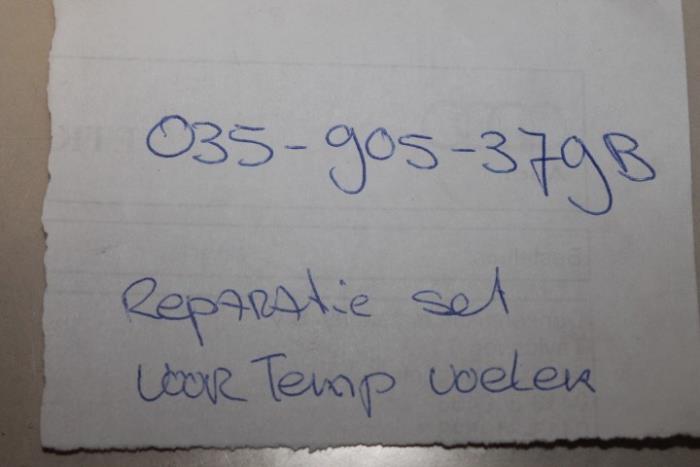 035-905-379B
Reparatie set
voor Temp voeler